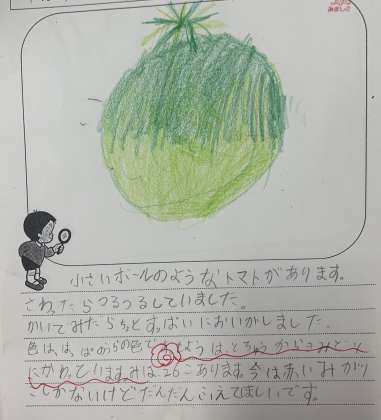 小さいボールのようなトマトがあります。
さわったらつるつるしていました。
かいでみたらちょとすっぱいにおいがしました。
色は、
とちゅうからきみどり
にかわっています。みは26こあります。今はあかいみが
すこしかないけどだんだんふえてほしいです。